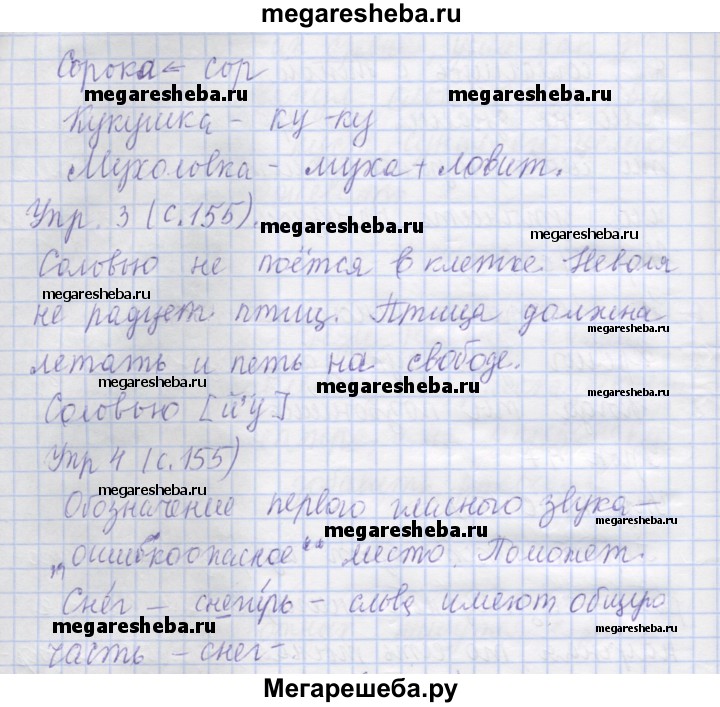 megaresheba.ru
Сорока ← сор
megaresheba.ru megaresheba.ru
Кукушка - ку-ку
Мухоловка - муха + ловит.
Упр. 3 (с.155).
megaresheba.ru megaresheba.ru
Соловью не поётся в клетке. Неволя
megaresheba.ru
не радует птиц. Птица должна
megaresheba.ru
летать и петь на свободе.
megaresheba.ru megaresheba.ru megaresheba.ru
Соловью [й'у]
Упр 4 (с.155)
megaresheba.ru megaresheba.ru
Обозначение первого гласного звука -
megaresheba.ru megaresheba.ru
"ошибкоопасное" место. Поможет.
Снег - снегирь - слова имеют общую
megaresheba.ru megaresheba.ru
часть - снег-
Мегарешеба.ру